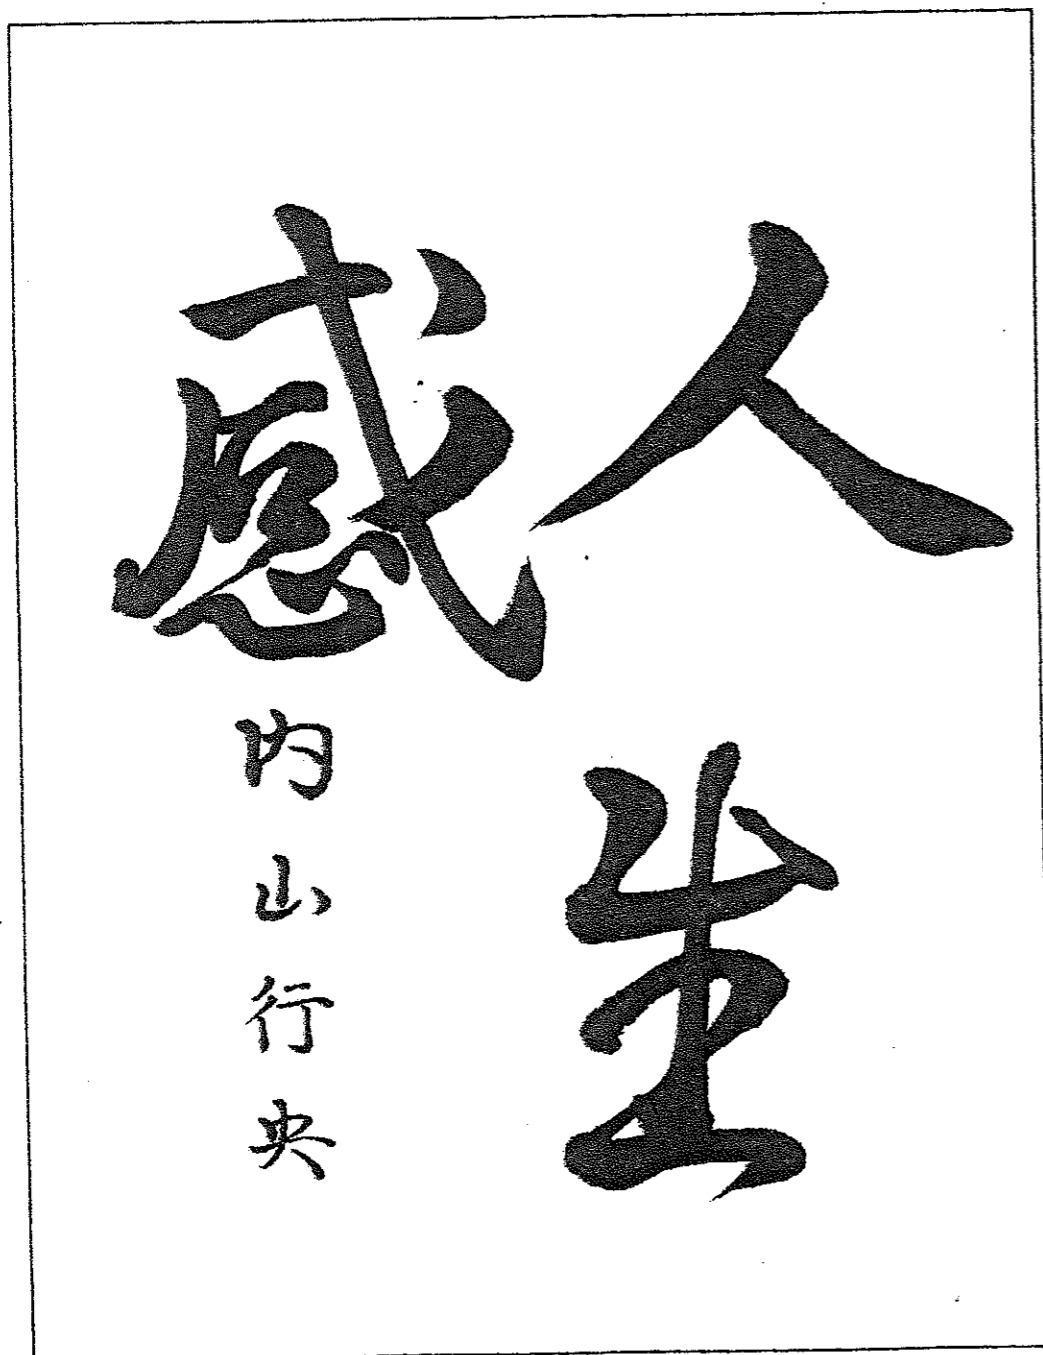 人生
感
内山行央